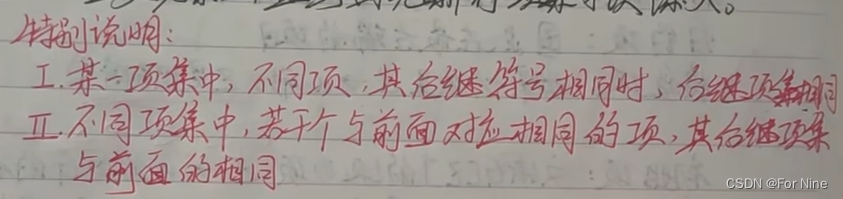 特别说明:
I. 某一项集中, 不同项, 其后继符号相同时, 后继项集相同
II. 不同项集中, 若干个与前面对应相同的项, 其后继项集
与前面的相同
CSDN @For Nine